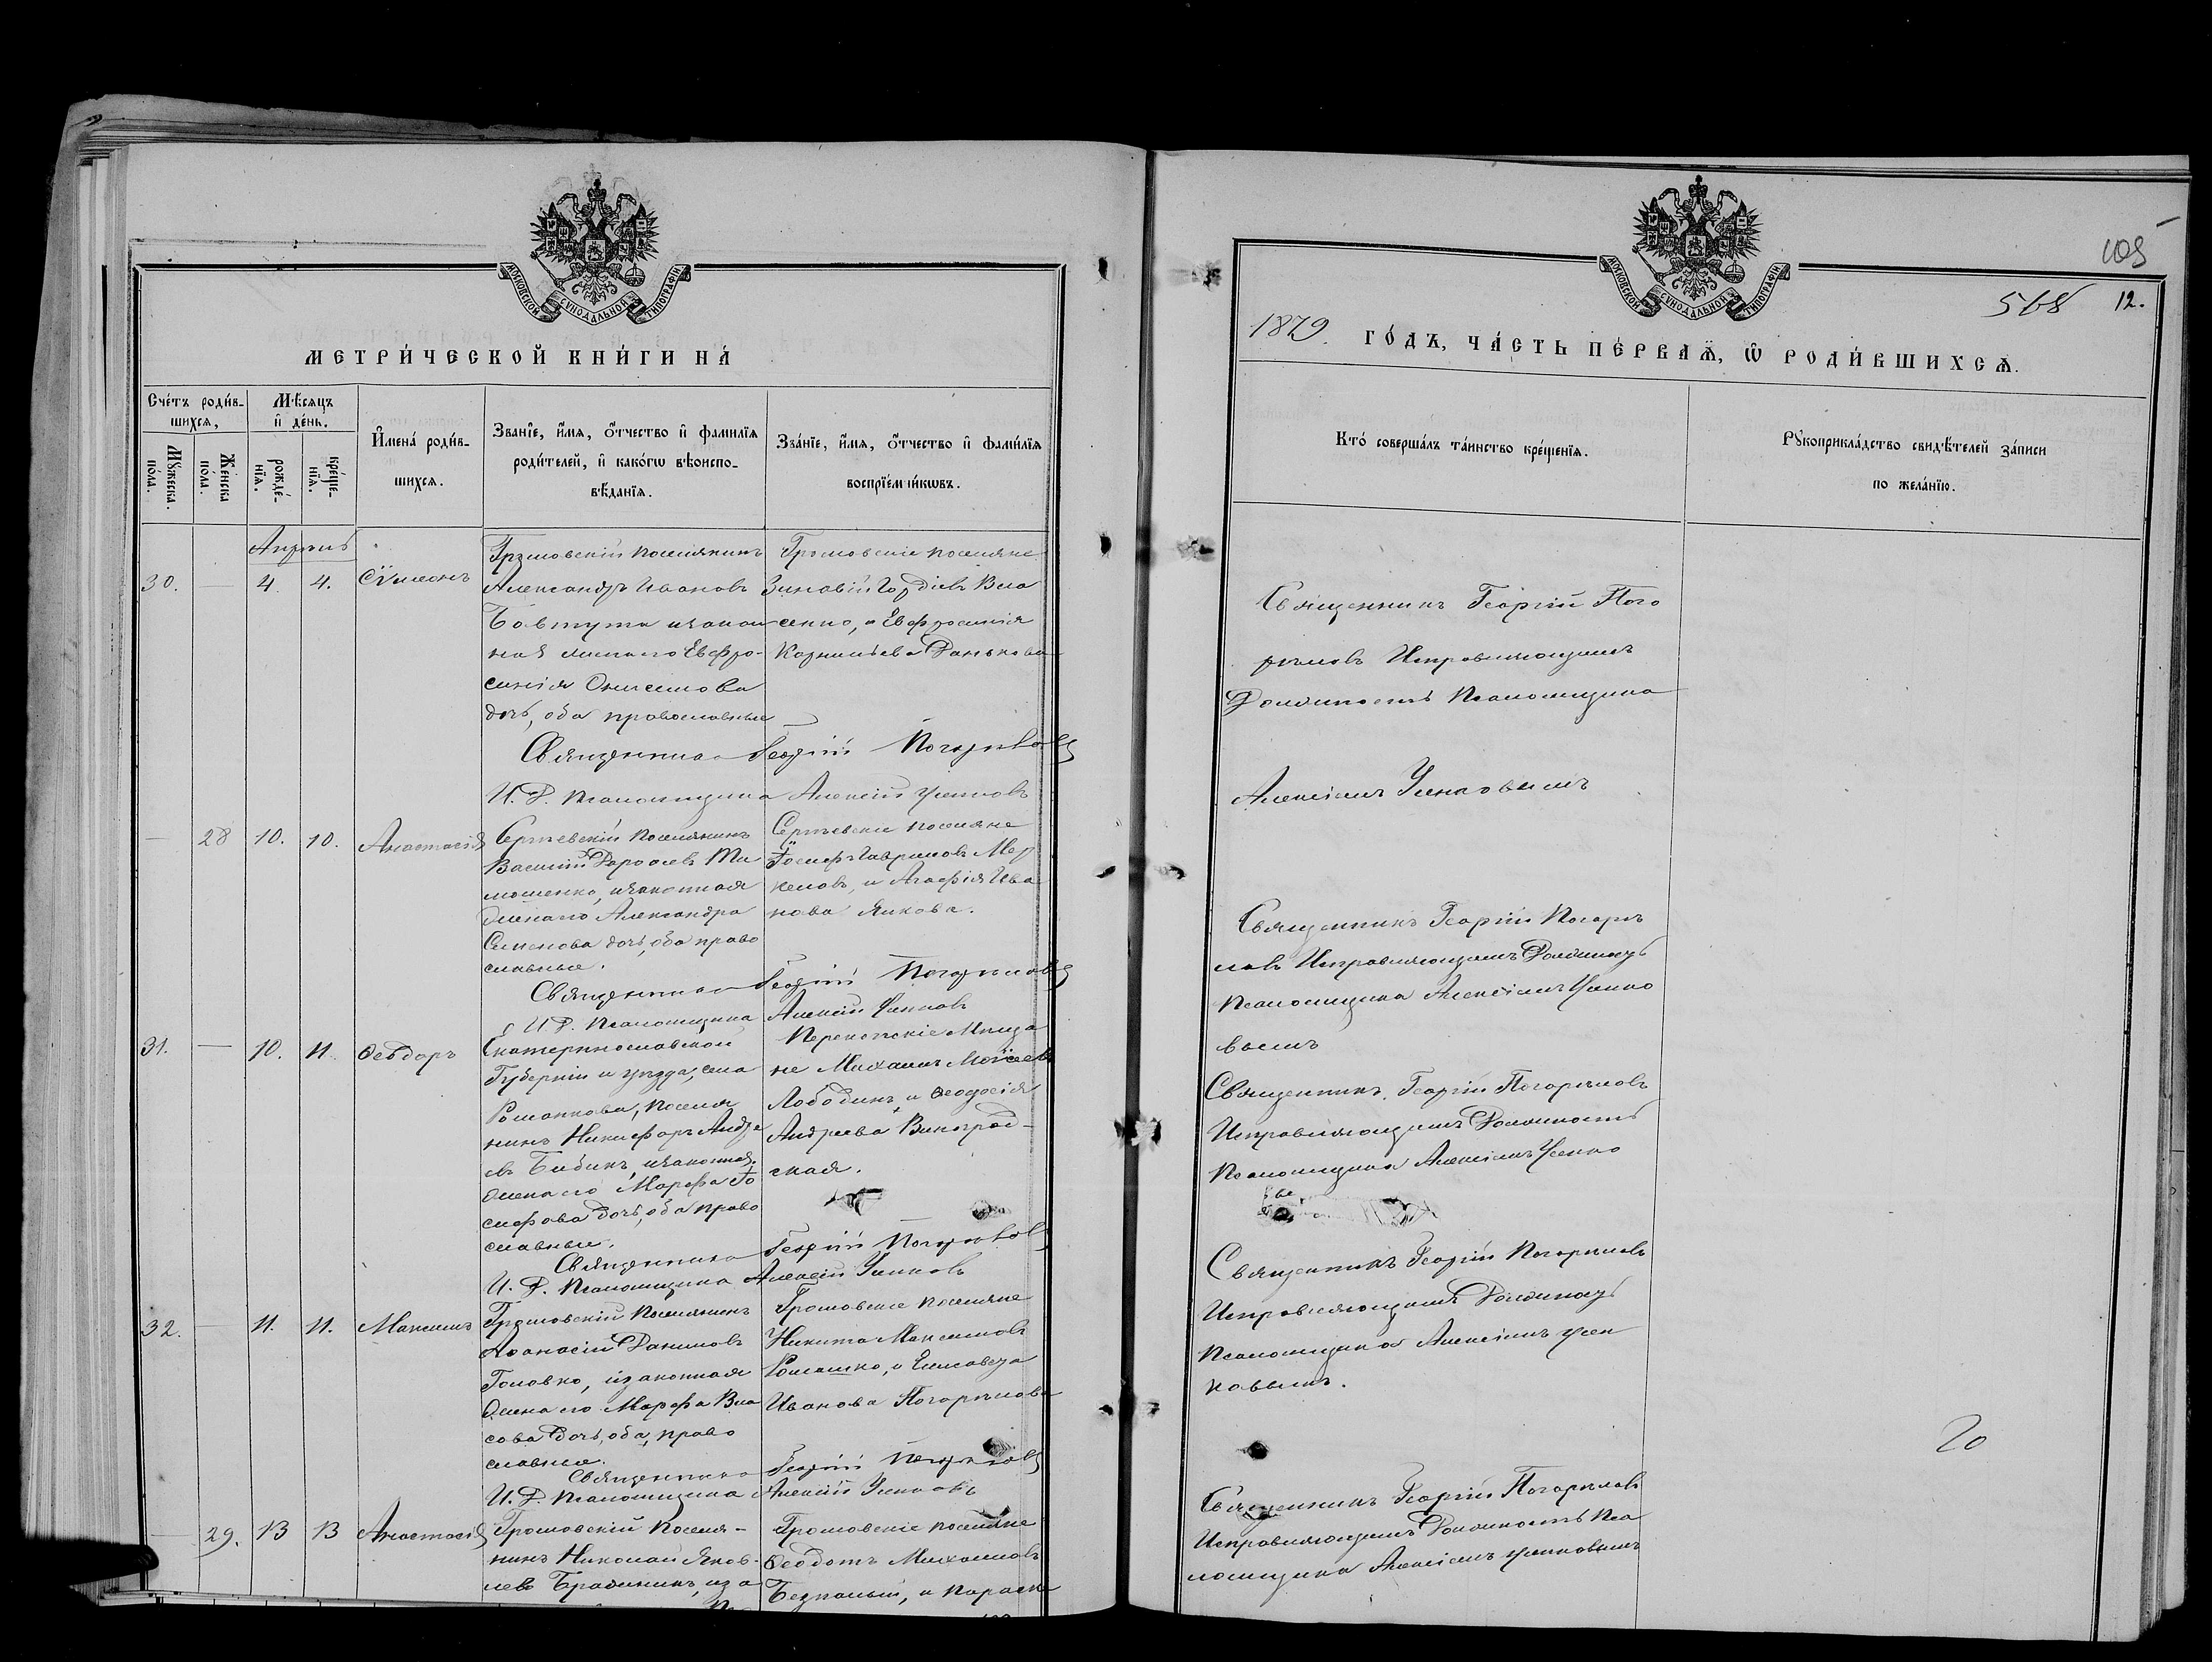 МОСКОВСКОЙ СУНОДАЛЬНОЙ ТИПОГРАФІИ
МЕТРИ́ЧЕСКОЙ КНИ́ГИ НА́
Сче́тъ роди́в-
шихся,
Мѣсяцъ
и҆ де́нь.
Мꙋжеска
по́ла.
Же́нска
по́ла.
рожде́-
нїѧ.
креще́-
нїѧ.
И҆мена́ роди́в-
шихсѧ.
Зва́нїе, и҆́мѧ, ѻ҆́тчество и҆ фамилїѧ
роди́телей, и҆ како́гѡ вѣ́роиспо-
вѣ́данїѧ.
Зва́нїе, и҆́мѧ, ѻ҆́тчество и҆ фами́лїѧ
воспрїе́мникѡвъ.
Апрѣль
30. — 4 4. Сѵмеонъ
Громовскій поселянинъ
Александръ Ивановъ
Бовтута и законная
жена его Евфро-
синія Онисимова
дочь, оба православные
Громовскіе поселяне
Зиновій Гордіевъ Вла
сенко, и Евфросинія
Корнилиева Данькова
Священникъ Георгій Погорѣловъ
И. Д. Псаломщика Алексій Усенковъ
— 28 10. 10. Анастасія
Сергѣевскій поселянинъ
Василій Дороѳеевъ Ти
мошенко, и законная
жена его Александра
Семенова дочь, оба право
славные.
Сергѣевскіе поселяне
Іосифъ Гавриловъ Мер
келовъ, и Агафія Ива
нова Яикова.
Священникъ Георгій Погорѣловъ
И. Д. Псаломщика Алексій Усенковъ
31. — 10. 11. Ѳеодоръ
Екатеринославской
Губерніи и уѣзда, села
Романкова, поселя
нинъ Никифоръ Андре
евъ Бибикъ, и законная
жена его Марфа Іо
сифова дочь, оба право
славные.
Перекопскіе Мѣща
не Михаилъ Моѵсеевъ
Лободинъ, и Ѳеодосія
Андреева Виноград-
ская.
Священникъ Георгій Погорѣловъ
И. Д. Псаломщика Алексій Усенковъ
32. — 11. 11. Максимъ
Громовскій поселянинъ
Аѳанасій Даниловъ
Головко, и законная
жена его Марфа Вла
сова дочь, оба право
славные.
Громовскіе поселяне
Никита Максимовъ
Ромашко, и Елисавета
Иванова Погорѣлова
Священникъ Георгій Погорѣловъ
И. Д. Псаломщика Алексій Усенковъ
— 29. 13 13 Анастасія
Громовскій поселя-
нинъ Николай Яков-
левъ Бражникъ, и за
Громовскіе поселяне
Ѳеодотъ Михаиловъ
Безпалый, и Параске
МОСКОВСКОЙ СУНОДАЛЬНОЙ ТИПОГРАФІИ
105
568 12.
1879. ГО́ДЪ, ЧА́СТЬ ПЕ́РВАѦ, Ѽ РОДИ́ВШИХСѦ.
Кто́ соверша́лъ та́инство креще́нїѧ.
Рꙋкоприкла́дство свидѣ́телей за́писи
по жела́нїю.
Священникъ Георгій Пого
рѣловъ Исправляющимъ
Должность Псаломщика
Алексіемъ Усенковымъ
Священникъ Георгій Погорѣ
ловъ Исправляющимъ Должность
Псаломщика Алексіемъ Усенко
вымъ
Священникъ Георгій Погорѣловъ
Исправляющимъ Должность
Псаломщика Алексіемъ Усенко
Священникъ Георгій Погорѣловъ
Исправляющимъ Должность
Псаломщика Алексіемъ Усен
ковымъ.
20
Священникъ Георгій Погорѣловъ
Исправляющимъ Должность Пса
ломщика Алексіемъ Усенковымъ